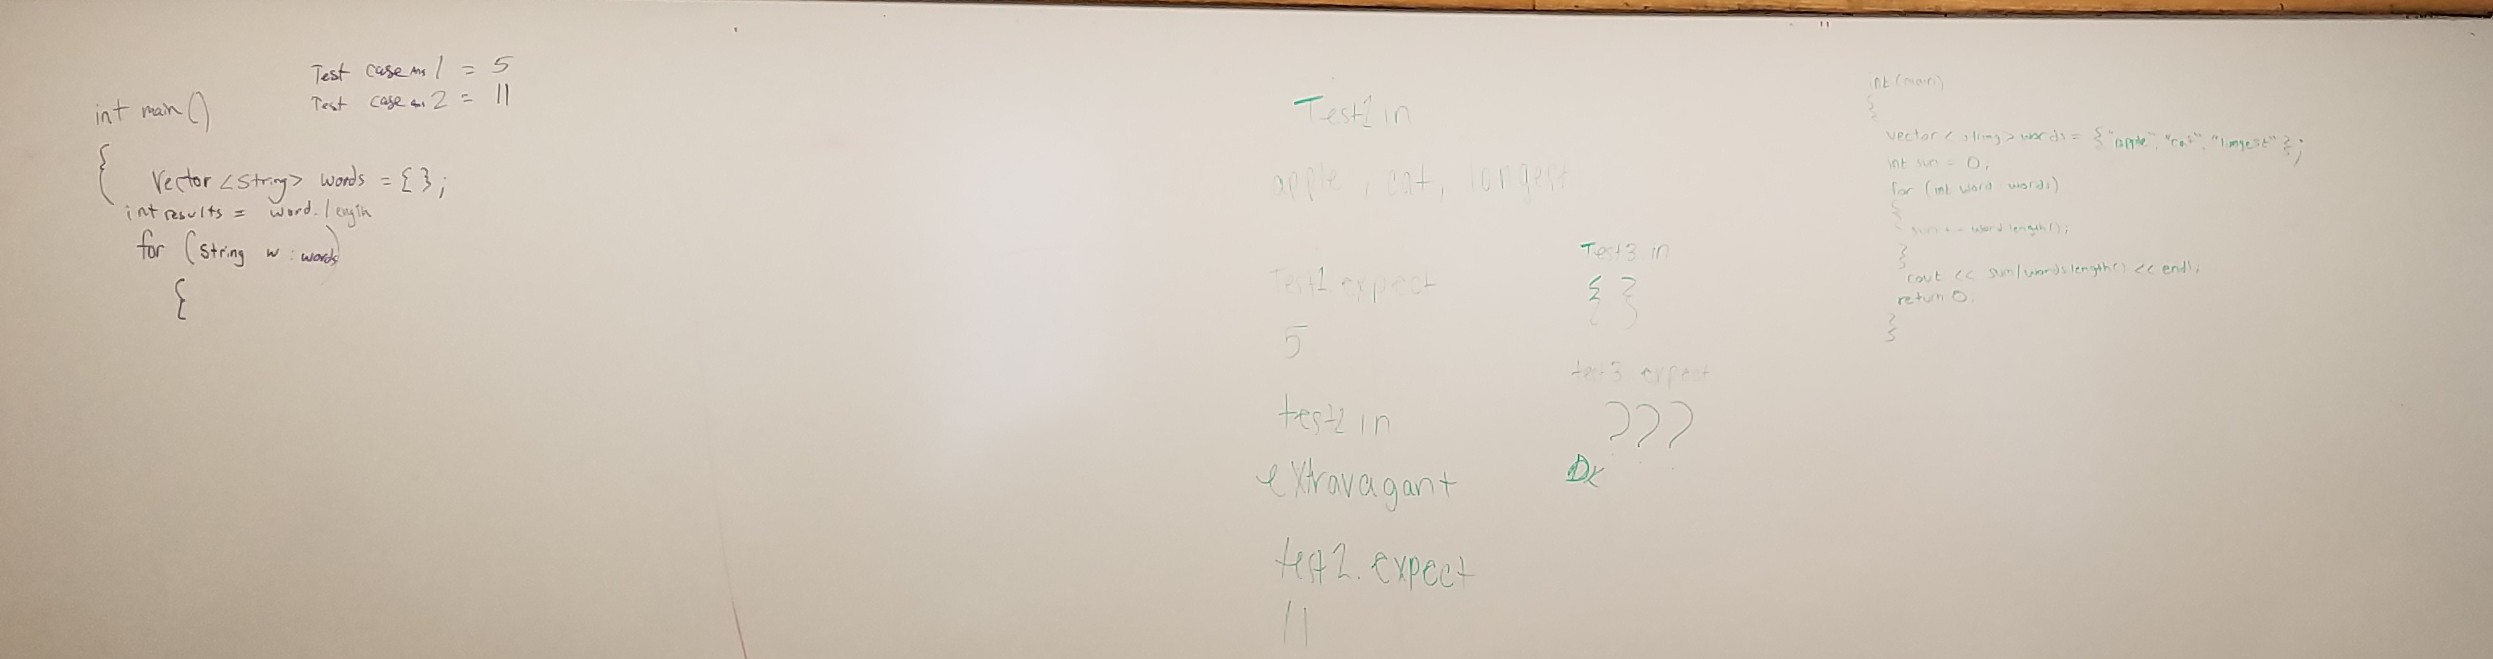 Test case Ans 1 = 5
Test case An. 2 = 11
int main ()
{
Vector <String> words = { };
int results = word.length
for (String w : words)
{
Test1 in
apple, cat, longest
Test1 expect
5
test2 in
extravagant
test2. expect
11
Test3 in
{ }
test3 expect
???
int (main)
{
vector < string > words = { "apple", "cat", "longest" };
int sum = 0;
for (int word : words)
{
sum += word.length();
}
cout << sum/words.length() << endl;
return 0;
}